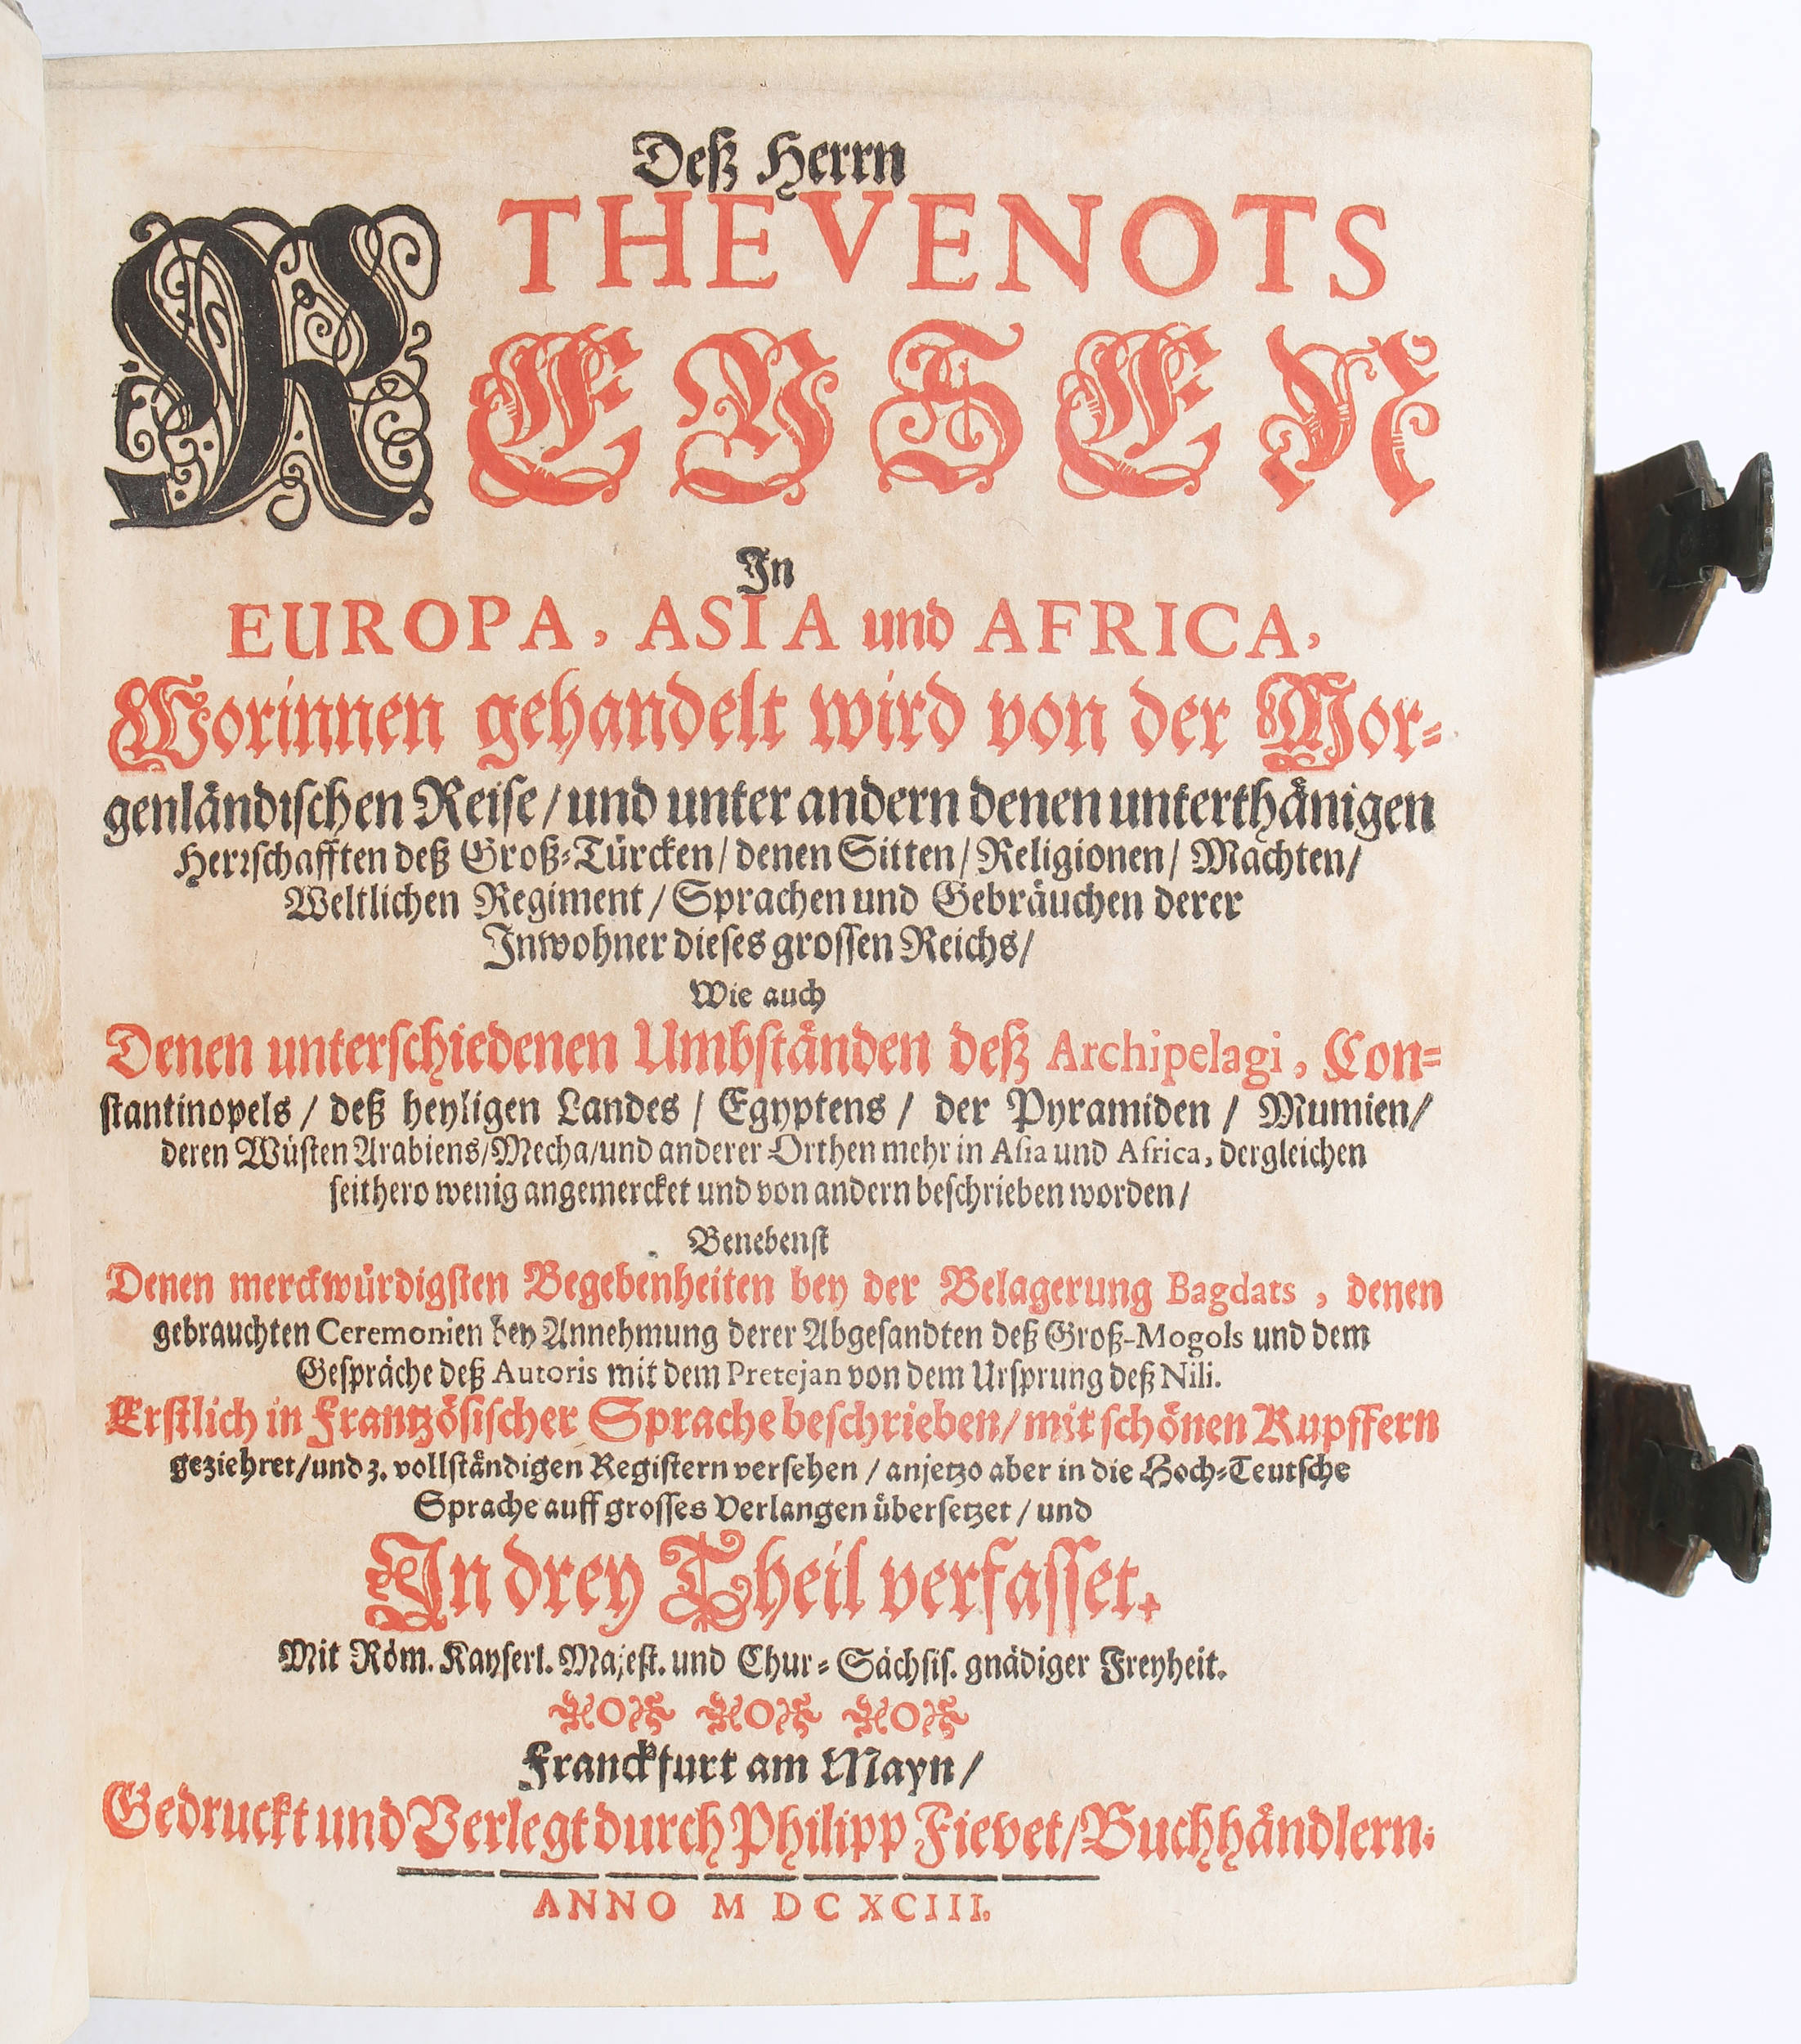 Deß Herrn
THEVENOTS
REYSEN
In
EUROPA, ASIA und AFRICA,
Worinnen gehandelt wird von der Mor-
genländischen Reise / und unter andern denen unterthänigen
Herrschafften deß Groß-Türcken / denen Sitten / Religionen / Mächten /
Weltlichen Regiment / Sprachen und Gebräuchen derer
Inwohner dieses grossen Reichs /
Wie auch
Denen unterschiedenen Umbständen deß Archipelagi, Con-
stantinopels / deß heyligen Landes / Egyptens / der Pyramiden / Mumien /
deren Wüsten Arabiens / Mecha / und anderer Orthen mehr in Asia und Africa, dergleichen
seithero wenig angemercket und von andern beschrieben worden /
Benebenst
Denen merckwürdigsten Begebenheiten bey der Belagerung Bagdats, denen
gebrauchten Ceremonien bey Annehmung derer Abgesandten deß Groß-Mogols und dem
Gespräche deß Autoris mit dem Pretejan von dem Ursprung deß Nili.
Erstlich in Frantzösischer Sprache beschrieben / mit schönen Kupffern
geziehret / und 3. vollständigen Registern versehen / anjetzo aber in die Hoch-Teutsche
Sprache auff grosses Verlangen übersetzet / und
In drey Theil verfasset.
Mit Röm. Kayserl. Majest. und Chur-Sächsis. gnädiger Freyheit.
Franckfurt am Mayn /
Gedruckt und Verlegt durch Philipp Fievet / Buchhändlern.
ANNO M DC XCIII.